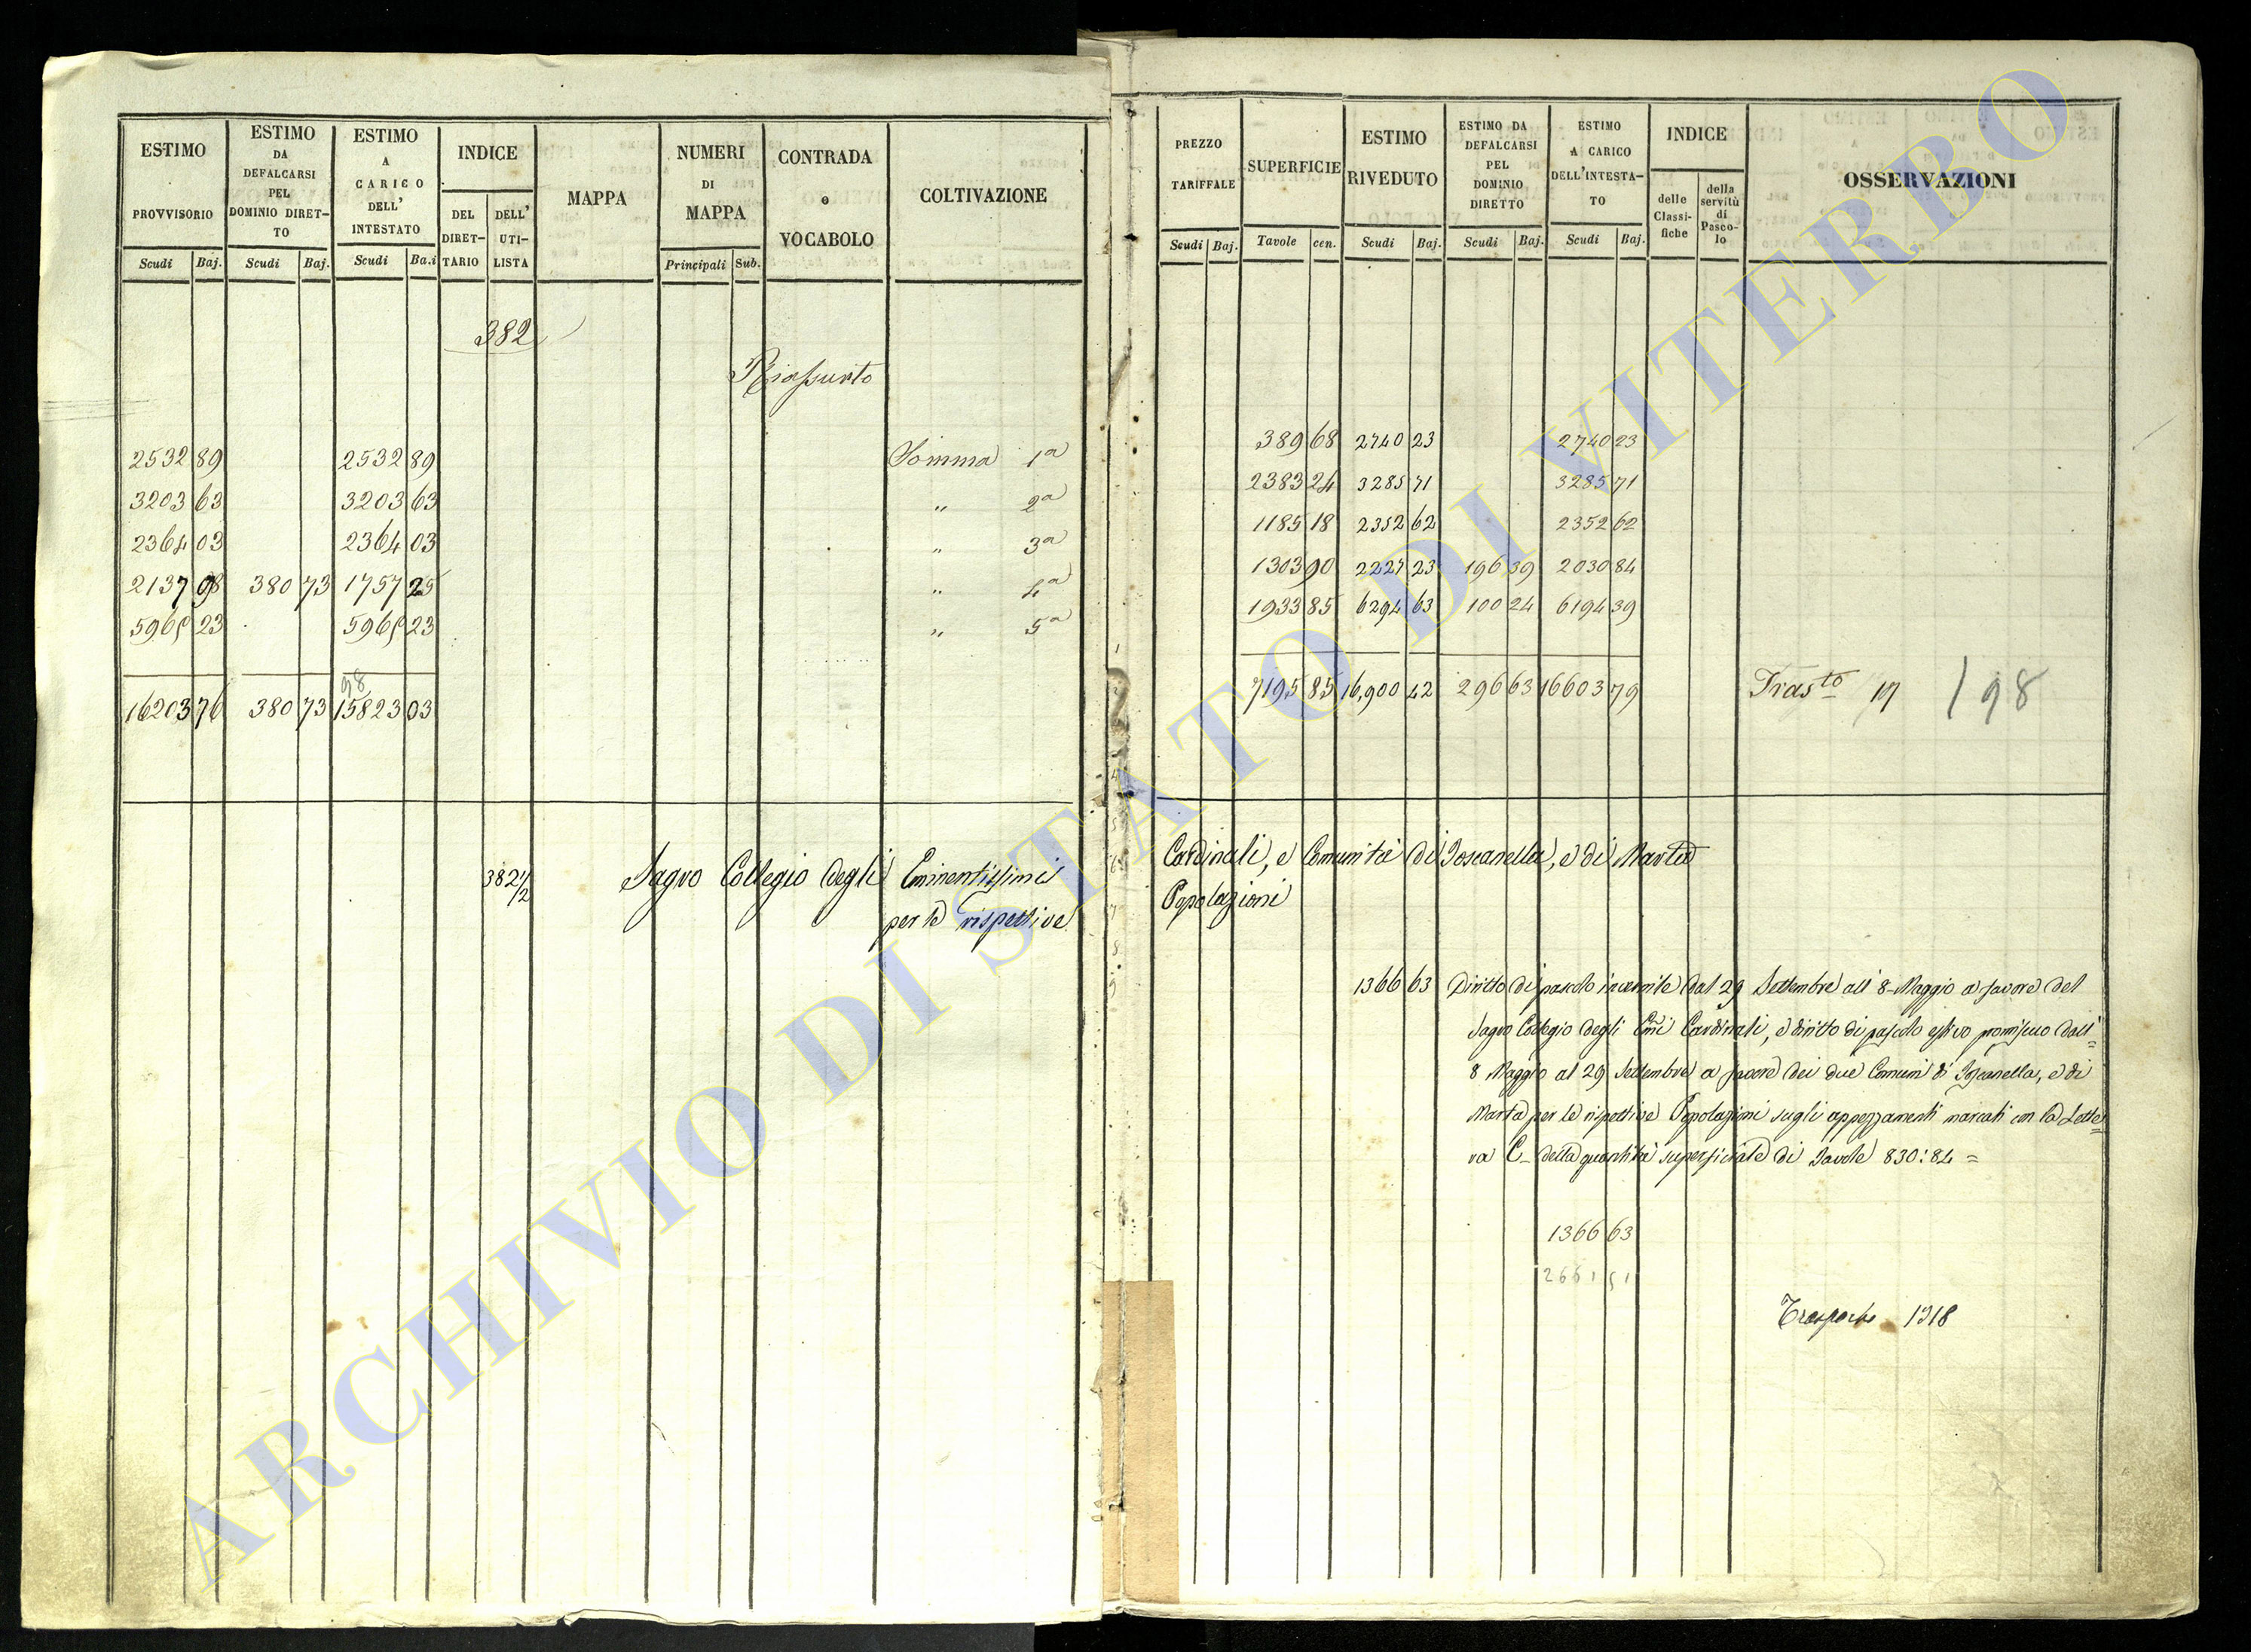 ESTIMO PROVVISORIO
ESTIMO DA DEFALCARSI PEL DOMINIO DIRET-TO
ESTIMO A CARICO DELL' INTESTATO
INDICE
DEL DIRET-TARIO
DELL' UTI-LISTA
MAPPA
NUMERI DI MAPPA
CONTRADA o VOCABOLO
COLTIVAZIONE
Scudi Baj. Scudi Baj. Scudi Ba.i
Principali Sub.
382
Riassunto
2532 89 2532 89 Somma 1a
3203 63 3203 63 " 2a
2364 03 2364 03 " 3a
2137 98 380 73 1757 25 " 4a
5965 23 5965 23 " 5a
98
16203 76 380 73 15823 03
382 1/2 Sagro Collegio degli Eminentissimi
per le rispettive
PREZZO TARIFFALE
SUPERFICIE
ESTIMO RIVEDUTO
ESTIMO DA DEFALCARSI PEL DOMINIO DIRETTO
ESTIMO A CARICO DELL'INTESTA-TO
INDICE
delle Classi-fiche
della servitù di Pasco-lo
OSSERVAZIONI
Scudi Baj. Tavole cen. Scudi Baj. Scudi Baj. Scudi Baj.
389 68 2740 23 2740 23
2383 24 3285 71 3285 71
1185 18 2352 62 2352 62
1303 90 2227 23 196 39 2030 84
1933 85 6294 63 100 24 6194 39
7195 85 16,900 42 296 63 16603 79 Trasto 198
Cardinali, e Comunità di Toscanella, e di Marta
Popolazioni
1366 63 Diritto di pascolo invernile dal 29 Settembre all' 8 Maggio a favore del
Sagro Collegio degli Emi Cardinali, e diritto di pascolo estivo promiscuo dall'=
8 Maggio al 29 Settembre a favore dei due Comuni di Toscanella, e di
Marta per le rispettive Popolazioni sugli appezzamenti marcati con la Lette=
ra C_ della quantità superficiale di Tavole 830:84 =
1366 63
2661 51
Trasporto 1318
ARCHIVIO DI STATO DI VITERBO